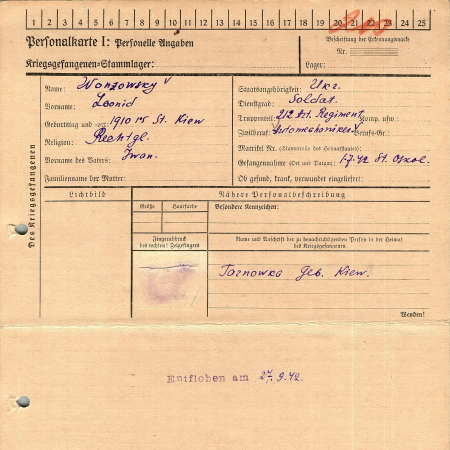 1 2 3 4 5 6 7 8 9 10 11 12 13 14 15 16 17 18 19 20 21 22 23 24 25
Personalkarte I: Personelle Angaben
Kriegsgefangenen-Stammlager:
Beschriftung der Erkennungsmarke
Nr.
Lager:
Des Kriegsgefangenen
Name: Wonzowsky
Vorname: Leonid
Geburtstag und -ort: 1910 15 St. Kiew
Religion: Rechtgl.
Vorname des Vaters: Iwan.
Familienname der Mutter:
Staatsangehörigkeit: Ukr.
Dienstgrad: Soldat.
Truppenteil: 212 Art. Regiment Komp. usw.
Zivilberuf: Automechaniker Berufs-Gr.:
Matrikel Nr. (Stammrolle des Heimatstaates):
Gefangennahme (Ort und Datum): 1-7.42 St. Oskol.
Ob gesund, krank, verwundet eingeliefert:
Lichtbild
Nähere Personalbeschreibung
Größe
Haarfarbe
Besondere Kennzeichen:
Fingerabdruck
des rechten! Zeigefingers
Name und Anschrift der zu benachrichtigenden Person in der Heimat
des Kriegsgefangenen
Tarnowka Geb. Kiew.
Wenden!
Entflohen am 27.9.42.